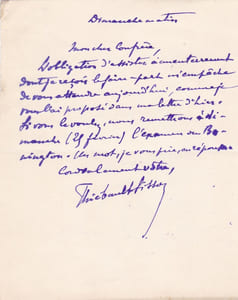 Dimanche matin
Mon cher Confrère,
L'obligation d'assister à un enterrement
dont je reçois le faire-part m'empêche
de vous attendre aujourd'hui, comme je
vous l'ai proposé dans ma lettre d'hier.
Si vous le voulez, nous remettrons à di-
manche (25 février) l'examen du Bo-
nington. Un mot, je vous prie, en réponse
Cordialement vôtre,
Thiébault-Sisson